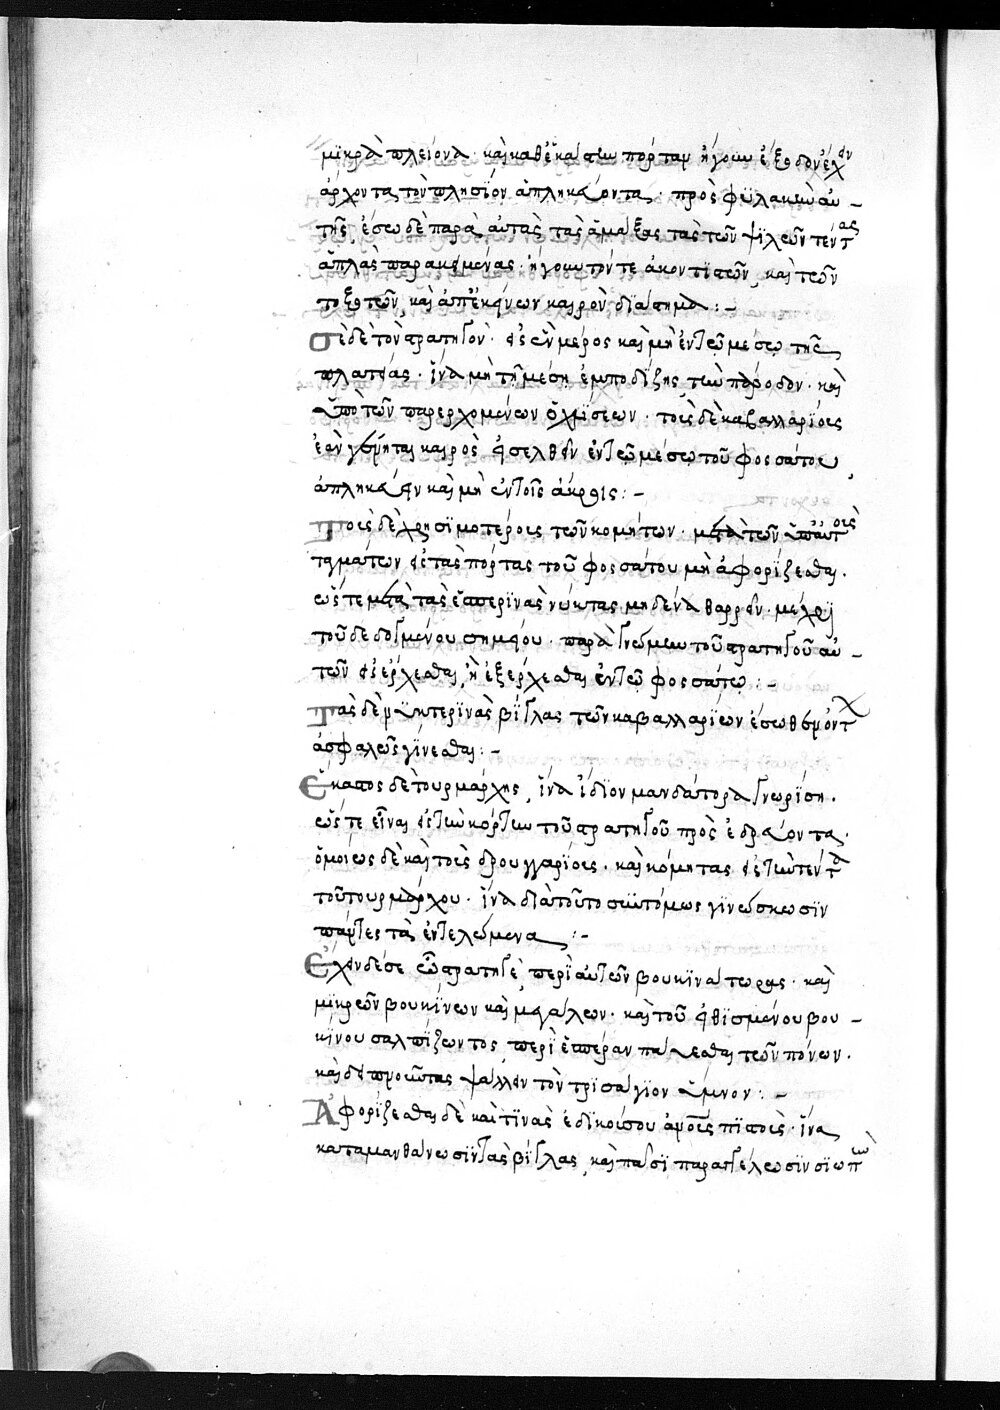 μικρὰ πλείονα· καὶ καθ' ἑκάστην πόρταν ἤγουν ἔξοδον ἔχειν
ἄρχοντα τὸν πλησίον ἀπληκεύοντα· πρὸς φυλακὴν αὐ-
τῆς, ἔσω δὲ παρὰ αὐτὰς τὰς ἁμάξας τὰς τῶν ψιλῶν τέντας
ἁπλὰς παρακειμένας· ἤγουν τόν τε ἀκοντιστῶν, καὶ τῶν
τοξοτῶν, καὶ ἀπ' ἐκείνων καιρὸν διάστημα:-
σὲ δὲ τὸν στρατηγὸν· εἰς ἓν μέρος καὶ μὴ ἐν τῷ μέσῳ τῆς
πλατείας· ἵνα μὴ τῇ μέσῃ ἐμποδίζῃς τὴν πάροδον· καὶ
ὑπὸ τῶν παρερχομένων ὀχλήσεων· τοὺς δὲ καβαλλαρίους
ἐὰν γένηται καιρὸς εἰσελθεῖν ἐν τῷ μέσῳ τοῦ φοσσάτου,
ἀπληκεύειν καὶ μὴ ἐν τοῖς ἄκροις:-
Τοὺς δὲ χρησιμοτέρους τῶν κομήτων· μετὰ τῶν ὑπ' αὐτοὺς
ταγμάτων εἰς τὰς πόρτας τοῦ φοσσάτου μὴ ἀφορίζεσθαι·
ὥστε μετὰ τὰς ἑσπερινὰς νύκτας μηδένα θαρρεῖν· μέχρι
τοῦ δεδομένου σημείου· παρὰ γνώμην τοῦ στρατηγοῦ αὐ-
τῶν εἰσέρχεσθαι, ἢ ἐξέρχεσθαι ἐν τῷ φοσσάτῳ:-
Τὰς δὲ νυκτερινὰς βίγλας τῶν καβαλλαρίων ἔσωθεν ὄντας
ἀσφαλῶς γίνεσθαι:-
Ἕκαστος δὲ τουρμάρχης, ἵνα ἴδιον μανδάτορα γνωρίσῃ·
ὥστε εἶναι εἰς τὴν κόρτην τοῦ στρατηγοῦ προσεδρεύοντα·
ὁμοίως δὲ καὶ τοὺς δρουγγαρίους· καὶ κόμητας εἰς τὴν τένταν
τοῦ τουρμάρχου· ἵνα διὰ τοῦτο συντόμως γινώσκωσιν
πάντες τὰ ἐντελώμενα:-
Ἔχειν δέ σε ὦ στρατηγὲ, περὶ αὐτῶν βουκινάτωρας· καὶ
μικρῶν βουκίνων καὶ μεγάλων· καὶ τοῦ εἰθισμένου βου-
κίνου σαλπίζωντος, περὶ ἑσπέραν παύεσθαι τῶν πόνων·
καὶ δειπνοῶντας ψάλλειν τὸν τρισάγιον ὕμνον:-
Ἀφορίζεσθαι δὲ καὶ τινὰς ἐδικούσου ἀνοὺς πιστοὺς· ἵνα
καταμανθάνωσιν τὰς βίγλας, καὶ πᾶσι παραγγέλωσιν σιωπὴν